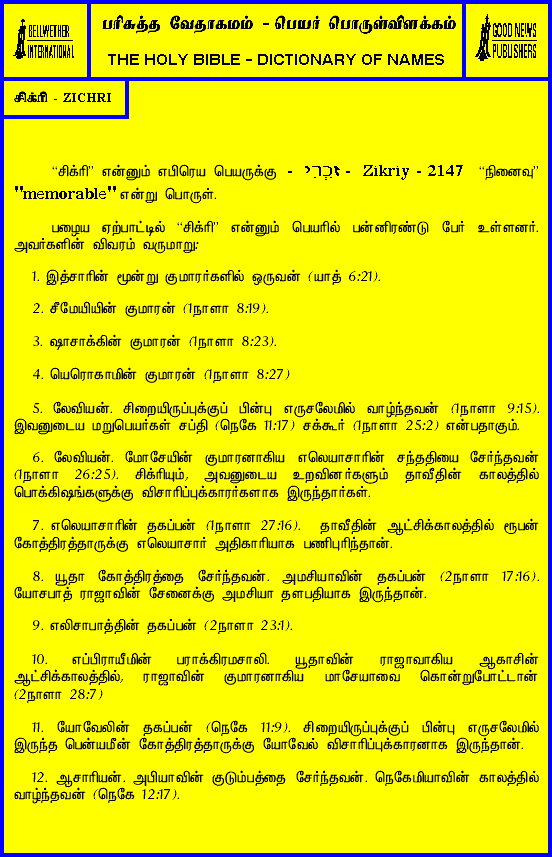 BELLWETHER
INTERNATIONAL
பரிசுத்த வேதாகமம் - பெயர் பொருள்விளக்கம்
THE HOLY BIBLE - DICTIONARY OF NAMES
GOOD NEWS
PUBLISHERS
சிக்ரி - ZICHRI
“சிக்ரி” என்னும் எபிரெய பெயருக்கு - זִכְרִי - Zikriy - 2147 “நினைவு”
"memorable" என்று பொருள்.
பழைய ஏற்பாட்டில் “சிக்ரி” என்னும் பெயரில் பன்னிரண்டு பேர் உள்ளனர்.
அவர்களின் விவரம் வருமாறு:
1. இத்சாரின் மூன்று குமாரர்களில் ஒருவன் (யாத் 6:21).
2. சீமேயியின் குமாரன் (1நாளா 8:19).
3. ஷாசாக்கின் குமாரன் (1நாளா 8:23).
4. யெரொகாமின் குமாரன் (1நாளா 8:27)
5. லேவியன். சிறையிருப்புக்குப் பின்பு எருசலேமில் வாழ்ந்தவன் (1நாளா 9:15).
இவனுடைய மறுபெயர்கள் சப்தி (நெகே 11:17) சக்கூர் (1நாளா 25:2) என்பதாகும்.
6. லேவியன். மோசேயின் குமாரனாகிய எலெயாசாரின் சந்ததியை சேர்ந்தவன்
(1நாளா 26:25). சிக்ரியும், அவனுடைய உறவினர்களும் தாவீதின் காலத்தில்
பொக்கிஷங்களுக்கு விசாரிப்புக்காரர்களாக இருந்தார்கள்.
7. எலெயாசாரின் தகப்பன் (1நாளா 27:16). தாவீதின் ஆட்சிக்காலத்தில் ரூபன்
கோத்திரத்தாருக்கு எலெயாசார் அதிகாரியாக பணிபுரிந்தான்.
8. யூதா கோத்திரத்தை சேர்ந்தவன். அமசியாவின் தகப்பன் (2நாளா 17:16).
யோசபாத் ராஜாவின் சேனைக்கு அமசியா தளபதியாக இருந்தான்.
9. எலிசாபாத்தின் தகப்பன் (2நாளா 23:1).
10. எப்பிராயீமின் பராக்கிரமசாலி. யூதாவின் ராஜாவாகிய ஆகாசின்
ஆட்சிக்காலத்தில், ராஜாவின் குமாரனாகிய மாசேயாவை கொன்றுபோட்டான்
(2நாளா 28:7)
11. யோவேலின் தகப்பன் (நெகே 11:9). சிறையிருப்புக்குப் பின்பு எருசலேமில்
இருந்த பென்யமீன் கோத்திரத்தாருக்கு யோவேல் விசாரிப்புக்காரனாக இருந்தான்.
12. ஆசாரியன். அபியாவின் குடும்பத்தை சேர்ந்தவன். நெகேமியாவின் காலத்தில்
வாழ்ந்தவன் (நெகே 12:17).